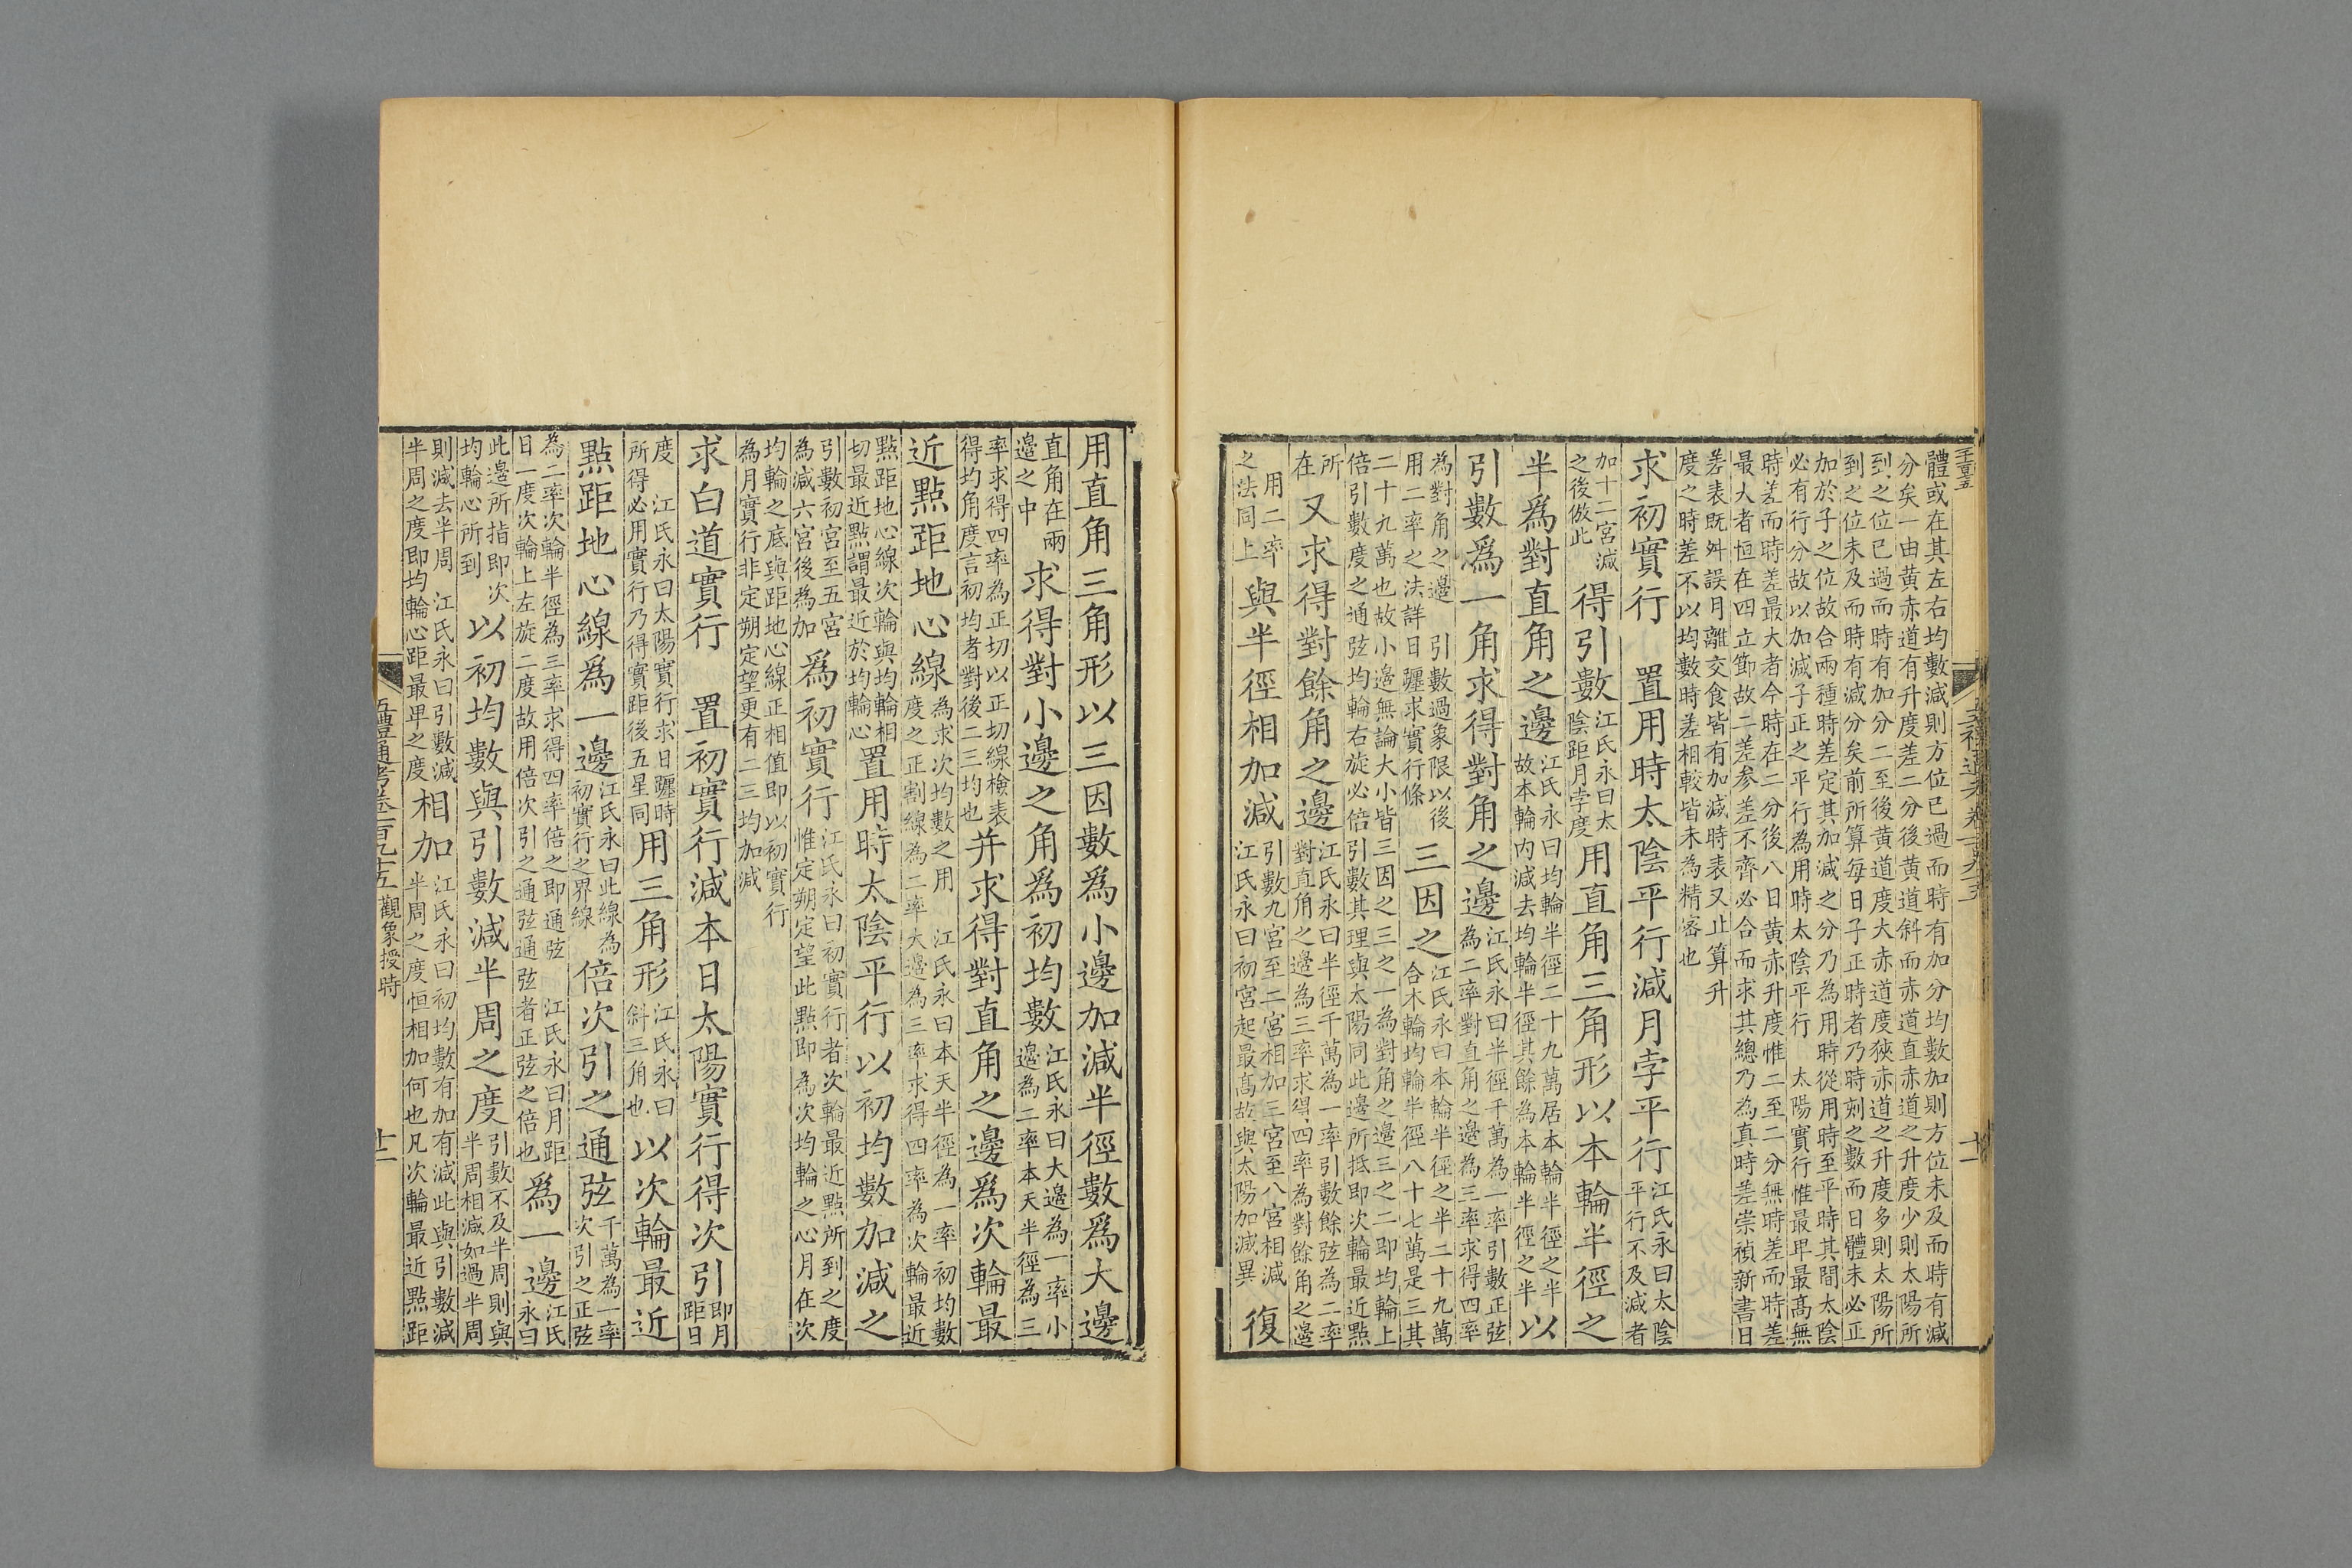 體或在其左右均數減則方位已過而時有加分均數加則方位未及而時有減
分矣一由黃赤道有升度差二分後黃道斜而赤道直赤道之升度少則太陽所
到之位已過而時有加分二至後黃道度大赤道度狹赤道之升度多則太陽所
到之位未及而時有減分矣前所算每日子正時者乃時刻之數而日體未必正
加於子之位故合兩種時差定其加減之分乃為用時從用時至平時其間太陰
必有行分故以加減子正之平行為用時太陰平行　太陽實行惟最卑最高無
時差而時差最大者今時在二分後八日黃赤升度惟二至二分無時差而時差
最大者恒在四立節故二差參差不齊必合而求其總乃為真時差崇禎新書日
差表既舛誤月離交食皆有加減時表又止算升
度之時差不以均數時差相較皆未為精密也
求初實行　置用時太陰平行減月孛平行江氏永曰太陰平行不及減者
加十二宮減之後倣此得引數江氏永曰太陰距月孛度用直角三角形以本輪半徑之
半爲對直角之邊江氏永曰均輪半徑二十九萬居本輪半徑之半故本輪內減去均輪半徑其餘為本輪半徑之半以
引數爲一角求得對角之邊江氏永曰半徑千萬為一率引數正弦為二率對直角之邊為三率求得四率
為對角之邊　引數過象限以後用二率之法詳日躔求實行條三因之江氏永曰本輪半徑之半二十九萬合本輪均輪半徑八十七萬是三其
二十九萬也故小邊無論大小皆三因之三之一為對角之邊三之二即均輪上
倍引數度之通弦均輪右旋必倍引數其理與太陽同此邊所抵即次輪最近點
所在又求得對餘角之邊江氏永曰半徑千萬為一率引數餘弦為二率對直角之邊為三率求得四率為對餘角之邊
用二率之法同上與半徑相加減引數九宮至二宮相加三宮至八宮相減江氏永曰初宮起最高故與太陽加減異復
用直角三角形以三因數為小邊加減半徑數爲大邊
直角在兩邊之中求得對小邊之角爲初均數江氏永曰大邊為一率小邊為二率本天半徑為三
率求得四率為正切以正切線檢表得均角度言初均者對後二三均也并求得對直角之邊爲次輪最
近點距地心線為求次均數之用　江氏永曰本天半徑為一率初均數度之正割線為二率大邊為三率求得四率為次輪最近
點距地心線次輪與均輪相切最近點謂最近於均輪心置用時太陰平行以初均數加減之
引數初宮至五宮為減六宮後為加爲初實行江氏永曰初實行者次輪最近點所到之度惟定朔定望此點即為次均輪之心月在次
均輪之底與距地心線正相值即以初實行
為月實行非定朔定望更有二三均加減
求白道實行　置初實行減本日太陽實行得次引即月距日
度　江氏永曰太陽實行求日躔時所得必用實行乃得實距後五星同用三角形江氏永曰斜三角也以次輪最近
點距地心線爲一邊江氏永曰此線為初實行之界線倍次引之通弦千萬為一率次引之正弦
為二率次輪半徑為三率求得四率倍之即通弦　江氏永曰月距日一度次輪上左旋二度故用倍次引之通弦通弦者正弦之倍也爲一邊江氏永曰
此邊所指即次均輪心所到以初均數與引數減半周之度引數不及半周則與半周相減如過半周
則減去半周　江氏永曰引數減半周之度即均輪心距最卑之度相加江氏永曰初均數有加有減此與引數減半周之度恒相加何也凡次輪最近點距
五禮通考卷一百九十五　觀象授時
十二